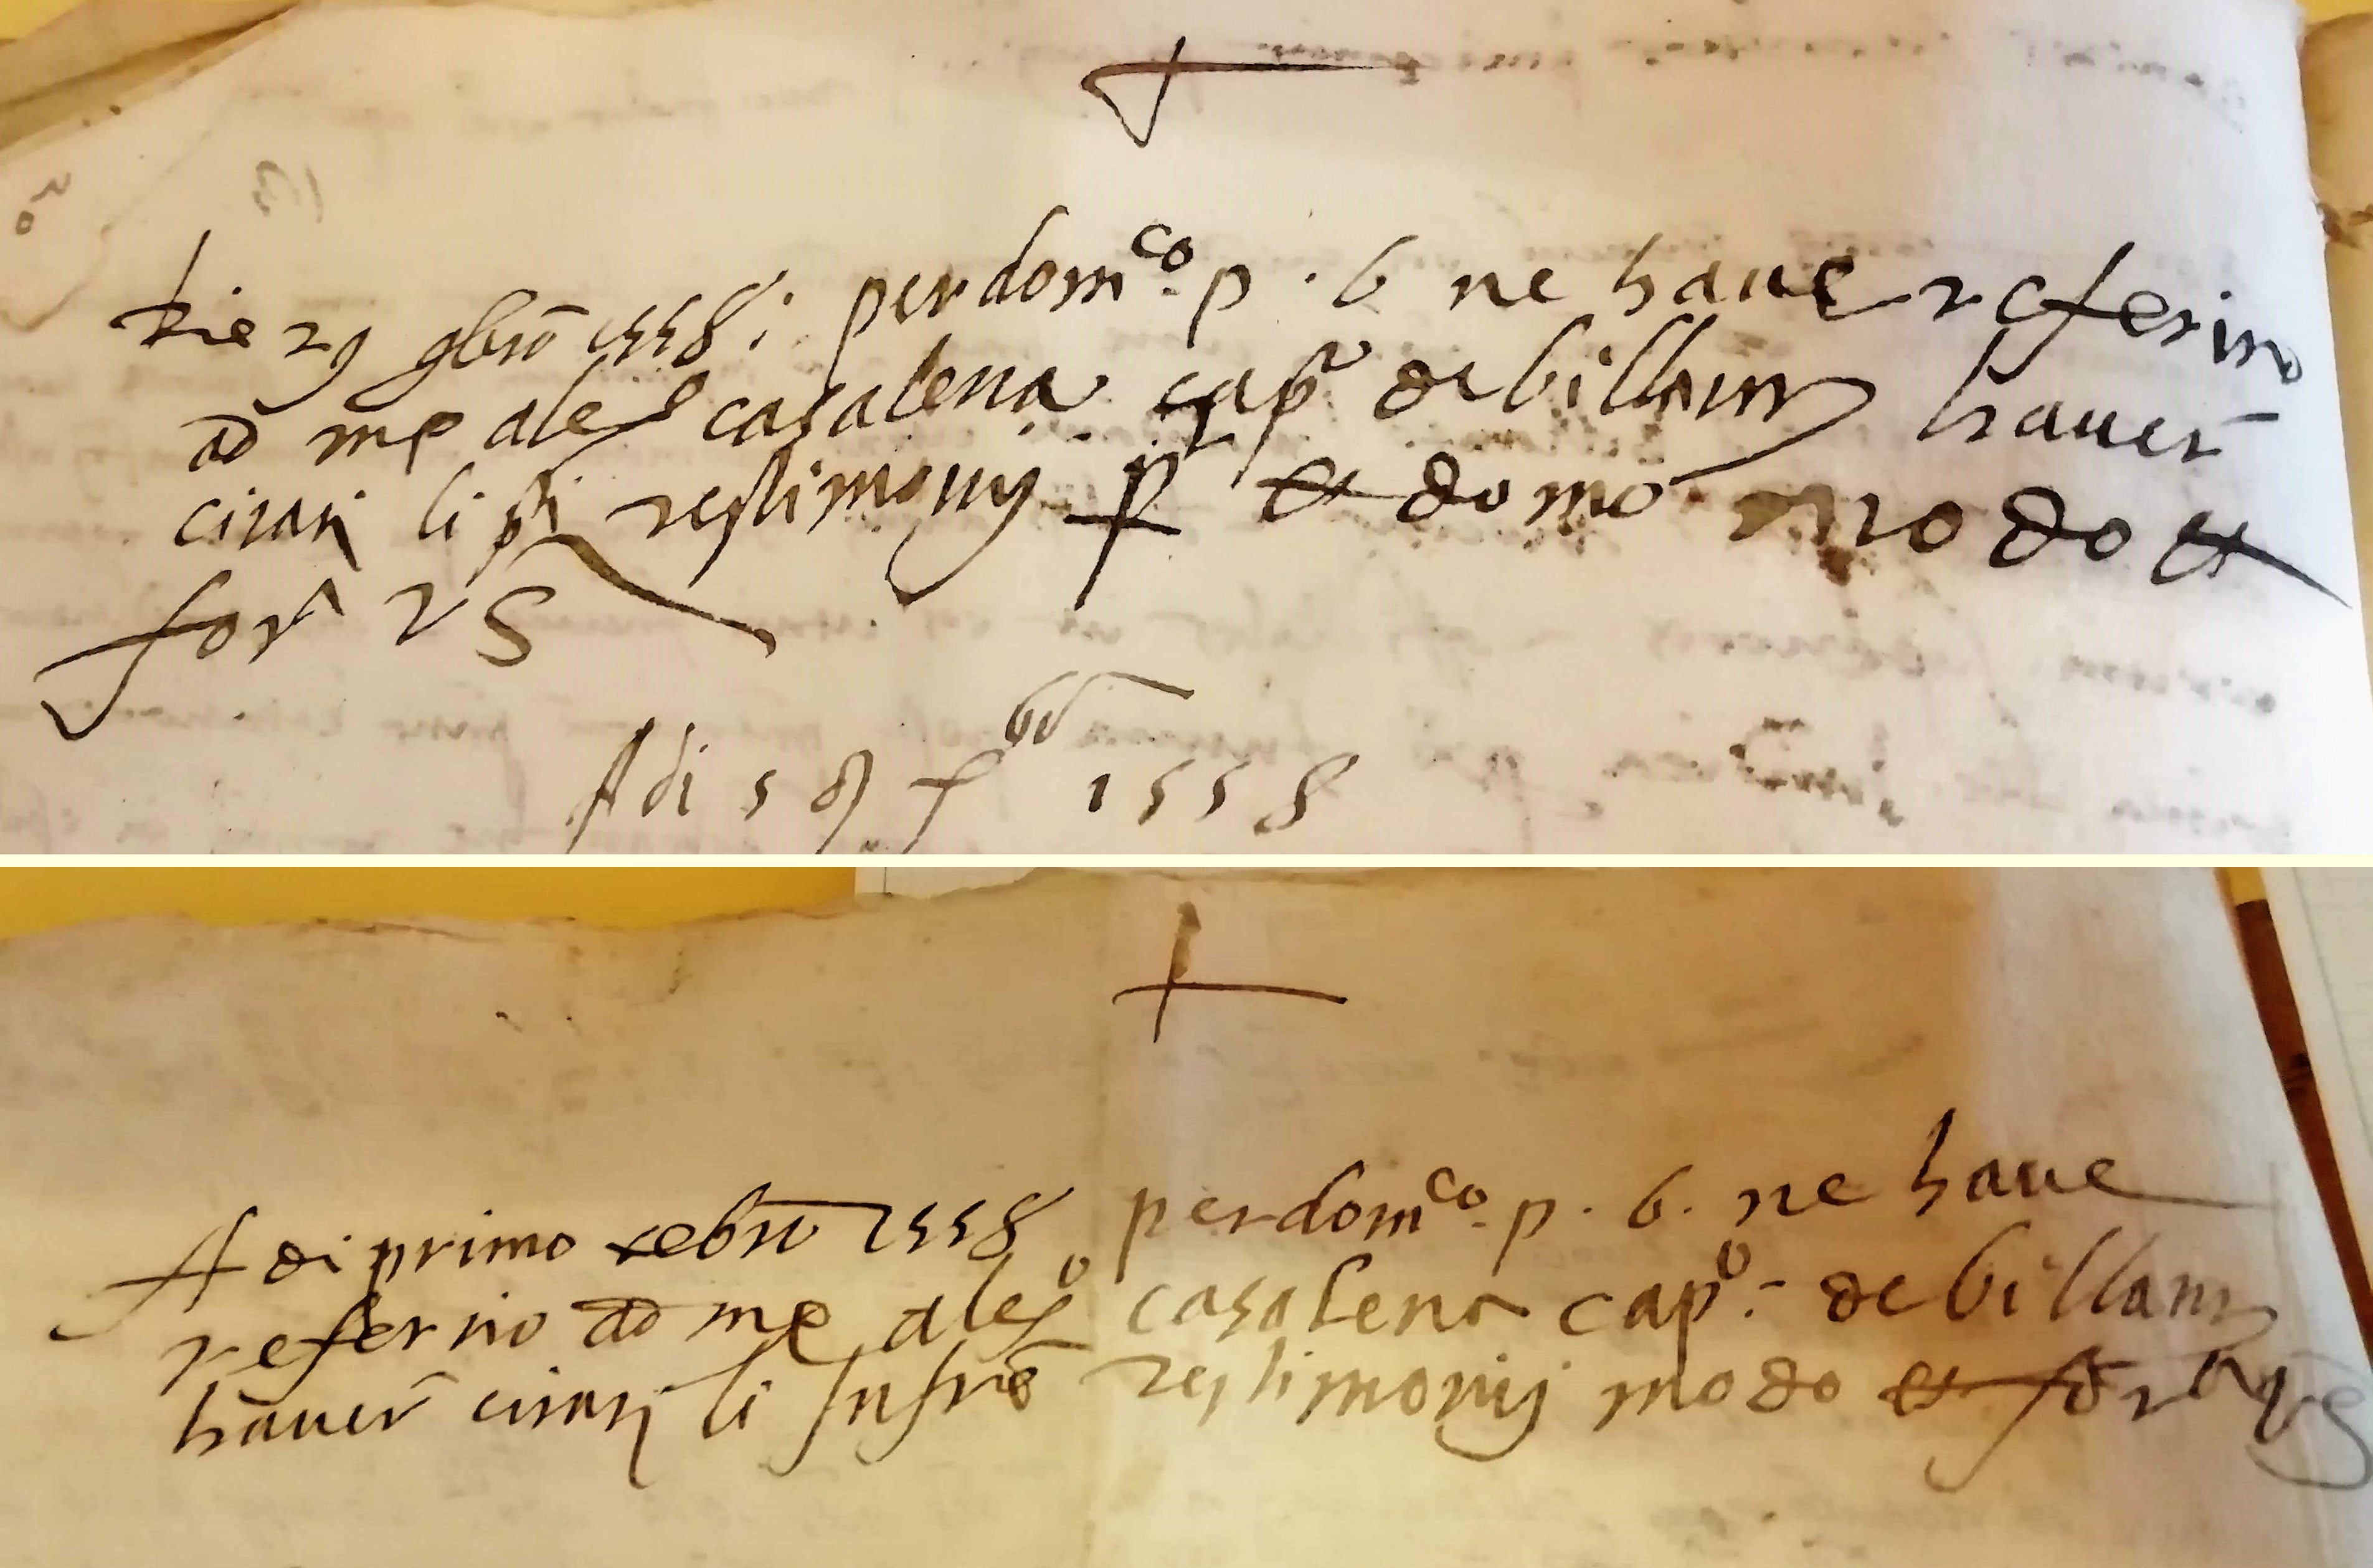 Die 29 9bro 1558: perdomco. p. b. ne have referito
ad me aleso casalena capo de billam haver
citati li pti testimonij p et domo modo et
forma VS
Adi 5 di xbre 1558
Adi primo xebro 1558 perdomco. p. b. ne have
referito ad me aleso casalena capo: de billam
haver citati li infrti testimonij modo et forma VS